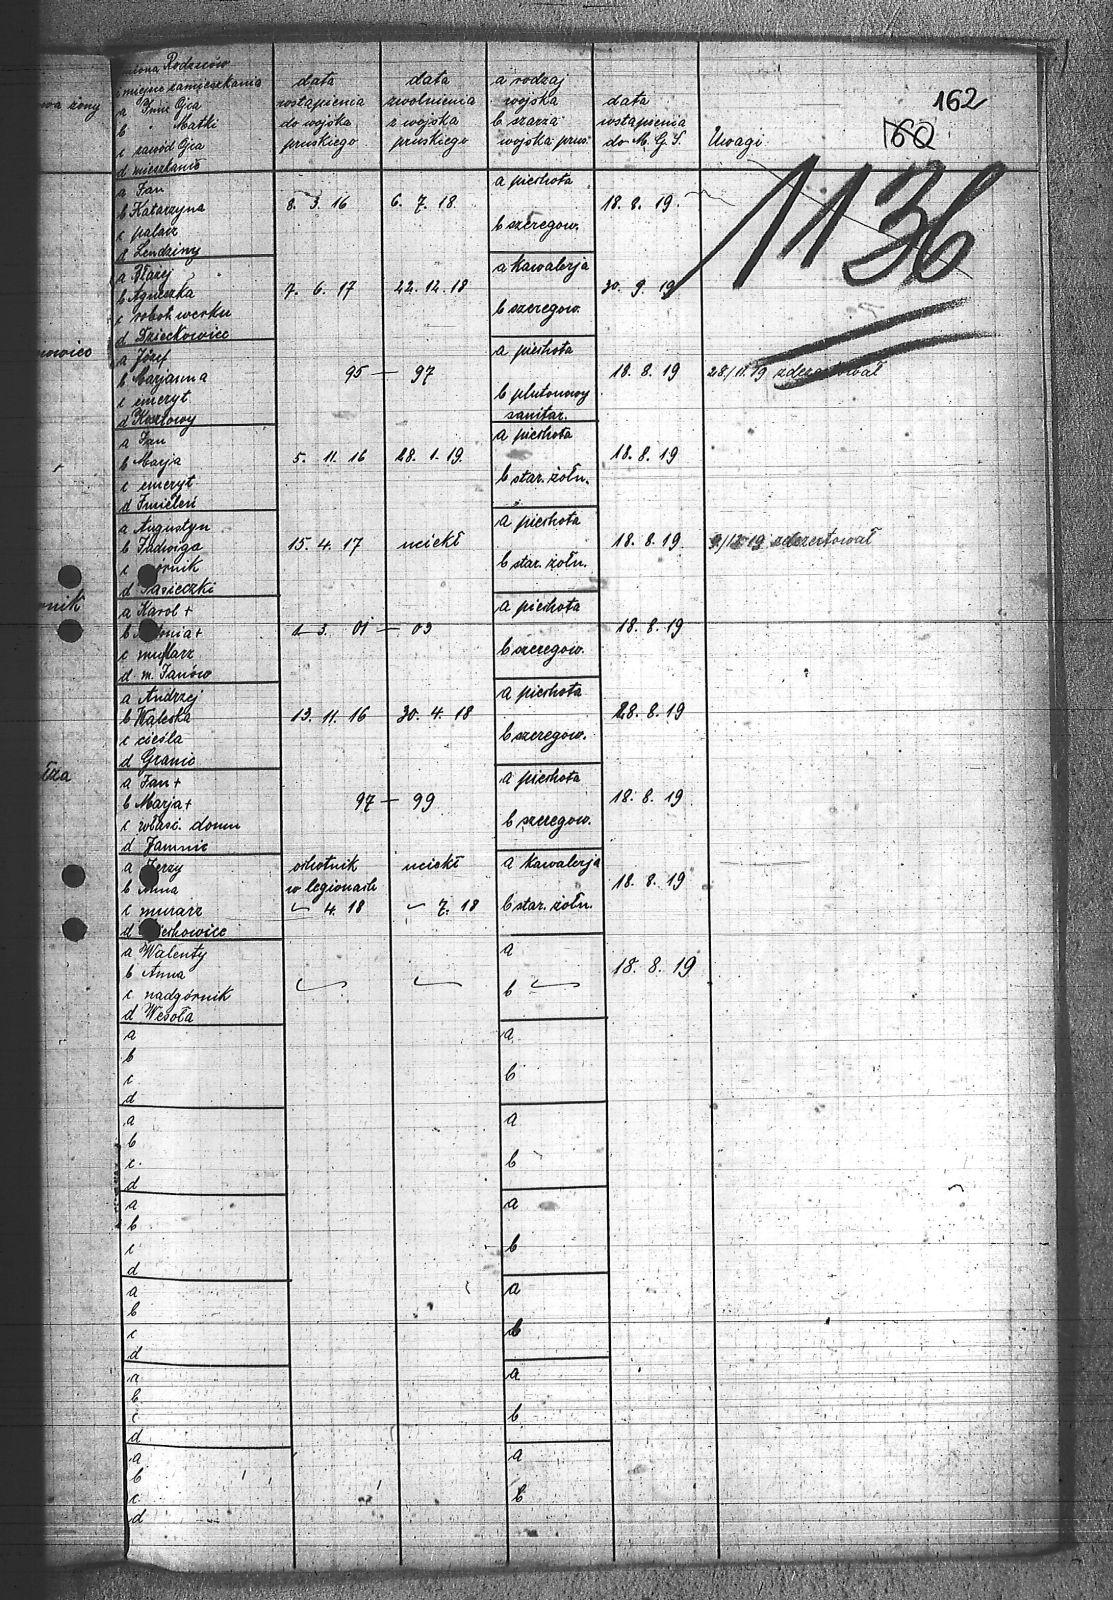 162
160
1136
Imiona Rodziców
i miejsce zamieszkania
a Imię Ojca
b " Matki
c zawód Ojca
d mieszkanie
data
wstąpienia
do wojska
pruskiego
data
zwolnienia
z wojska
pruskiego
a rodzaj
wojska
b szarża
wojska prus.
data
wstąpienia
do M. G. Ś.
Uwagi
żony
a Jan
b Katarzyna
c palacz
d Lendziny
8. 3. 16
6. 7. 18
a piechota
b szeregow.
18. 8. 19
a Błażej
b Agnieszka
c robot.
d Dzieckowice
7. 6. 17
22. 12. 18
a kawalerja
b szeregow.
30. 9. 19
nowice
a Józef
b Marjanna
c emeryt
d Kosztowy
95 — 97
a piechota
b plutonowy
sanitar.
18. 8. 19
28/11.19 zdezertował
a Jan
b Marja
c emeryt
d Imieleń
5. 11. 16
28. 1. 19
a piechota
b star. żołn.
18. 8. 19
a Augustyn
b Jadwiga
c górnik
d Pasieczki
15. 4. 17
uciekł
a piechota
b star. żołn.
18. 8. 19
zdezertował
rnik
a Karol +
b
c murarz
d m. Janów
3. 01 — 03
a piechota
b szeregow.
18. 8. 19
a Andrzej
b Waleska
c cieśla
d Granic
13. 11. 16
30. 4. 18
a piechota
b szeregow.
28. 8. 19
a Jan +
b Marja +
c właśc. domu
d Jamnic
97 — 99
a piechota
b szeregow.
18. 8. 19
a Jerzy
b Anna
c murarz
d
ochotnik
w legionach
— 4. 18
uciekł
— 7. 18
a kawalerja
b star. żołn.
18. 8. 19
a Walenty
b Anna
c nadgórnik
d Wesoła
—
—
a
b —
18. 8. 19
a
b
c
d
a
b
a
b
c
d
a
b
a
b
c
d
a
b
a
b
c
d
a
b
a
b
c
d
a
b
a
b
c
d
a
b